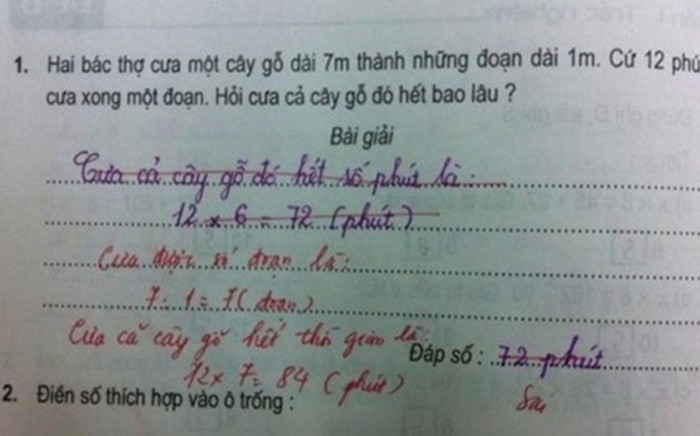 1. Hai bác thợ cưa một cây gỗ dài 7m thành những đoạn dài 1m. Cứ 12 phú
cưa xong một đoạn. Hỏi cưa cả cây gỗ đó hết bao lâu ?
Bài giải
Cưa cả cây gỗ đó hết số phút là:
12 x 6 = 72 (phút)
Cưa được số đoạn là:
7 : 1 = 7 (đoạn)
Cưa cả cây gỗ hết thời gian là:
Đáp số : 72 phút
12 x 7 = 84 (phút)
Sai
2. Điền số thích hợp vào ô trống :